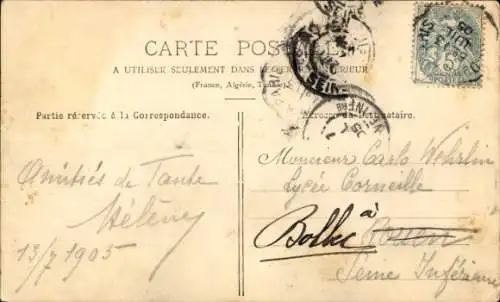 CARTE POSTALE
A UTILISER SEULEMENT DANS INTÉRIEUR
(France, Algérie, Tunisie)
Partie réservée à la Correspondance.
Adresse du Destinataire.
Amitiés de Tante
Hélène
13/7 1905
Monsieur Carlo Wehrlin
Lycée Corneille
à
Rouen
Seine Inférieure